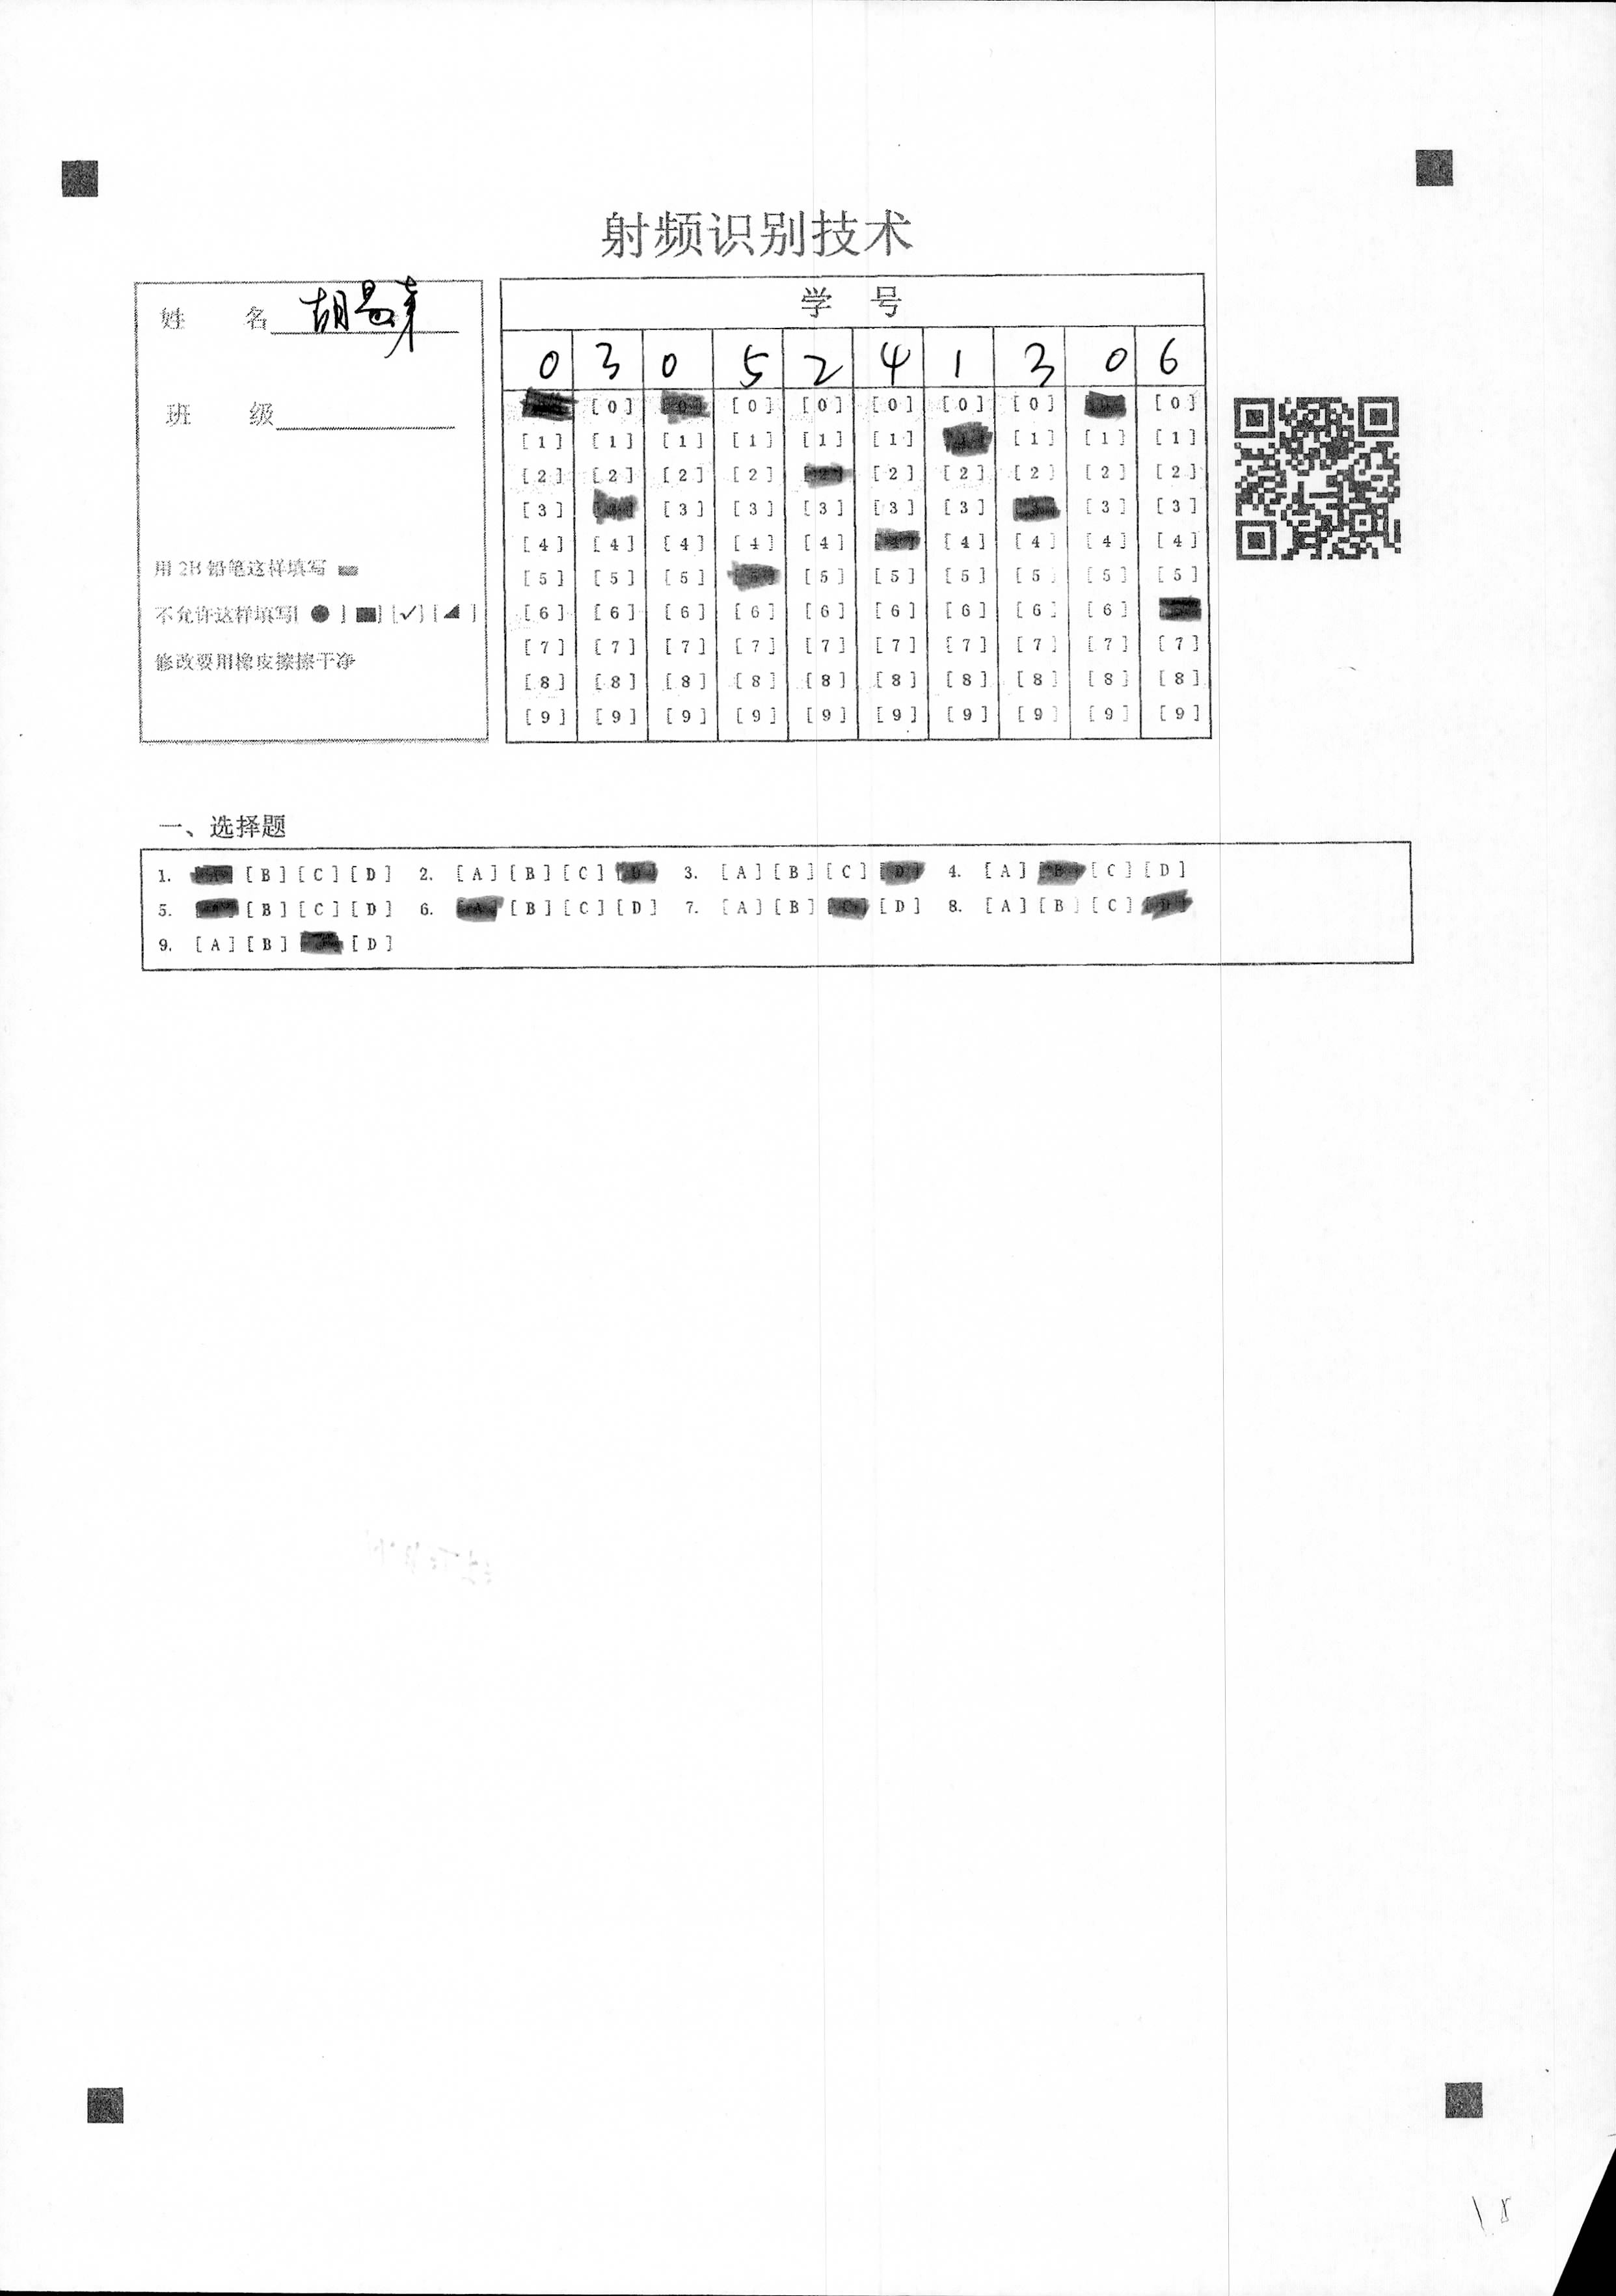 射频识别技术
姓 名 胡
班 级
用 2B 铅笔这样填写
不允许这样填写[ ● ] ■] [✓] [◢ ]
修改要用橡皮擦擦干净
学 号
0 3 0 5 2 4 1 3 0 6
[0] [0] [0] [0] [0] [0] [0] [0]
[1] [1] [1] [1] [1] [1] [1] [1] [1]
[2] [2] [2] [2] [2] [2] [2] [2] [2]
[3] [3] [3] [3] [3] [3] [3] [3]
[4] [4] [4] [4] [4] [4] [4] [4] [4]
[5] [5] [5] [5] [5] [5] [5] [5] [5]
[6] [6] [6] [6] [6] [6] [6] [6] [6]
[7] [7] [7] [7] [7] [7] [7] [7] [7] [7]
[8] [8] [8] [8] [8] [8] [8] [8] [8] [8]
[9] [9] [9] [9] [9] [9] [9] [9] [9] [9]
一、选择题
1. [A] [B] [C] [D] 2. [A] [B] [C] [D] 3. [A] [B] [C] [D] 4. [A] [B] [C] [D]
5. [A] [B] [C] [D] 6. [A] [B] [C] [D] 7. [A] [B] [C] [D] 8. [A] [B] [C] [D]
9. [A] [B] [C] [D]